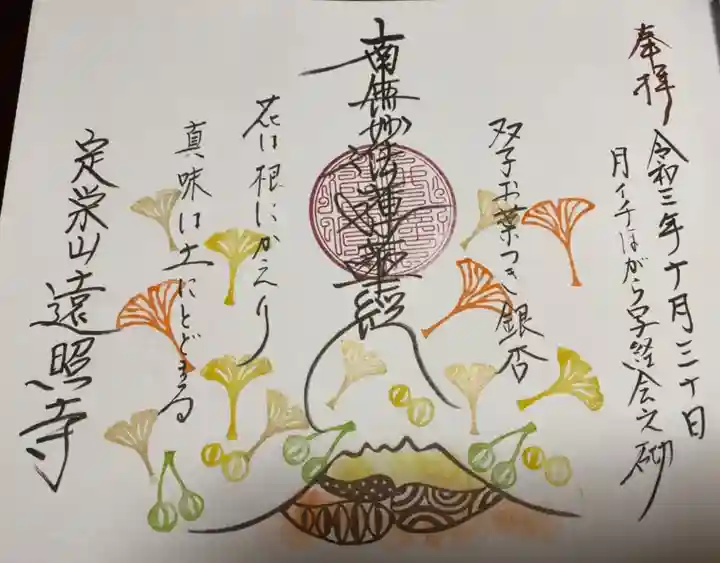 奉拝
令和三年十月三十日
月イチはがら写経会之砌
双子お葉つき銀杏
南無妙法蓮華経
花は根にかえり
真味は土にとどまる
定栄山遠照寺